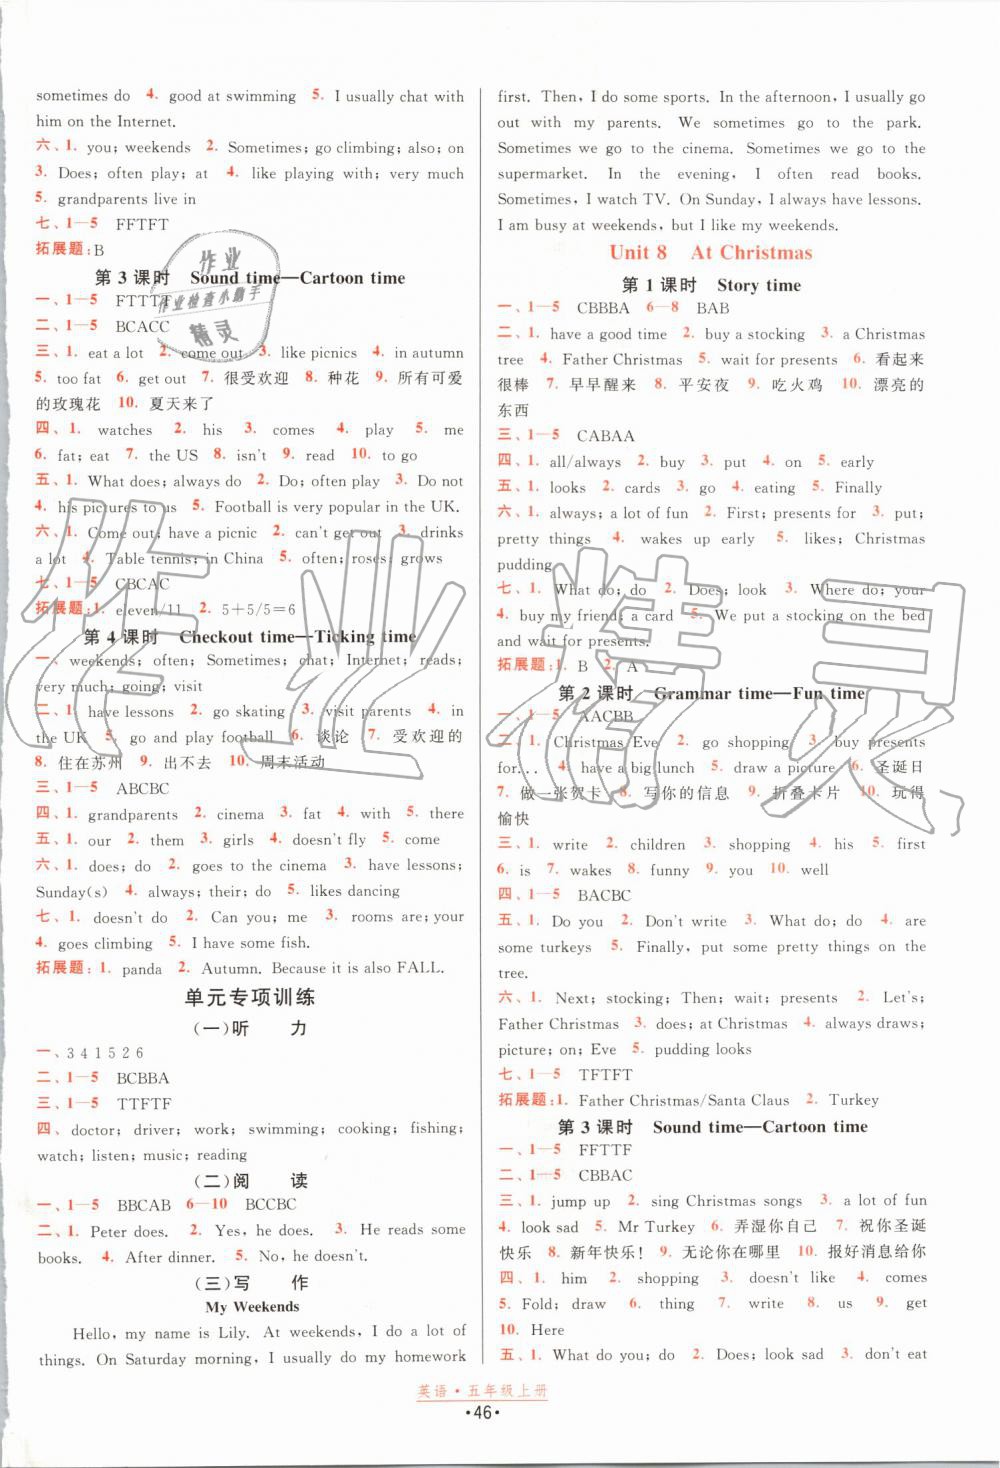 sometimes do 4. good at swimming 5. I usually chat with
him on the Internet.
六、1. you; weekends 2. Sometimes; go climbing; also; on
3. Does; often play; at 4. like playing with; very much
5. grandparents live in
七、1—5 FFTFT
拓展题:B
第 3 课时 Sound time—Cartoon time
一、1—5 FTTTT
二、1—5 BCACC
三、1. eat a lot 2. come out 3. like picnics 4. in autumn
5. too fat 6. get out 7. 很受欢迎 8. 种花 9. 所有可爱
的玫瑰花 10. 夏天来了
四、1. watches 2. his 3. comes 4. play 5. me
6. fat; eat 7. the US 8. isn't 9. read 10. to go
五、1. What does; always do 2. Do; often play 3. Do not
4. his pictures to us 5. Football is very popular in the UK.
六、1. Come out; have a picnic 2. can't get out 3. drinks
a lot 4. Table tennis; in China 5. often; roses; grows
七、1—5 CBCAC
拓展题:1. eleven/11 2. 5+5/5=6
第 4 课时 Checkout time—Ticking time
一、weekends; often; Sometimes; chat; Internet; reads;
very much; going; visit
二、1. have lessons 2. go skating 3. visit parents 4. in
the UK 5. go and play football 6. 谈论 7. 受欢迎的
8. 住在苏州 9. 出不去 10. 周末活动
三、1—5 ABCBC
四、1. grandparents 2. cinema 3. fat 4. with 5. there
五、1. our 2. them 3. girls 4. doesn't fly 5. come
六、1. does; do 2. goes to the cinema 3. have lessons;
Sunday(s) 4. always; their; do 5. likes dancing
七、1. doesn't do 2. Can you; me 3. rooms are; your
4. goes climbing 5. I have some fish.
拓展题:1. panda 2. Autumn. Because it is also FALL.
单元专项训练
(一)听 力
一、3 4 1 5 2 6
二、1—5 BCBBA
三、1—5 TTFTF
四、doctor; driver; work; swimming; cooking; fishing;
watch; listen; music; reading
(二)阅 读
一、1—5 BBCAB 6—10 BCCBC
二、1. Peter does. 2. Yes, he does. 3. He reads some
books. 4. After dinner. 5. No, he doesn't.
(三)写 作
My Weekends
Hello, my name is Lily. At weekends, I do a lot of
things. On Saturday morning, I usually do my homework
first. Then, I do some sports. In the afternoon, I usually go
out with my parents. We sometimes go to the park.
Sometimes we go to the cinema. Sometimes we go to the
supermarket. In the evening, I often read books.
Sometimes, I watch TV. On Sunday, I always have lessons.
I am busy at weekends, but I like my weekends.
Unit 8 At Christmas
第 1 课时 Story time
一、1—5 CBBBA 6—8 BAB
二、1. have a good time 2. buy a stocking 3. a Christmas
tree 4. Father Christmas 5. wait for presents 6. 看起来
很棒 7. 早早醒来 8. 平安夜 9. 吃火鸡 10. 漂亮的
东西
三、1—5 CABAA
四、1. all/always 2. buy 3. put 4. on 5. early
五、1. looks 2. cards 3. go 4. eating 5. Finally
六、1. always; a lot of fun 2. First; presents for 3. put;
pretty things 4. wakes up early 5. likes; Christmas
pudding
七、1. What do; do 2. Does; look 3. Where do; your
4. buy my friend; a card 5. We put a stocking on the bed
and wait for presents.
拓展题:1. B 2. A
第 2 课时 Grammar time—Fun time
一、1—5 AACBB
二、1. Christmas Eve 2. go shopping 3. buy presents
for... 4. have a big lunch 5. draw a picture 6. 圣诞日
7. 做一张贺卡 8. 写你的信息 9. 折叠卡片 10. 玩得
愉快
三、1. write 2. children 3. shopping 4. his 5. first
6. is 7. wakes 8. funny 9. you 10. well
四、1—5 BACBC
五、1. Do you 2. Don't write 3. What do; do 4. are
some turkeys 5. Finally, put some pretty things on the
tree.
六、1. Next; stocking; Then; wait; presents 2. Let's;
Father Christmas 3. does; at Christmas 4. always draws;
picture; on; Eve 5. pudding looks
七、1—5 TFTFT
拓展题:1. Father Christmas/Santa Claus 2. Turkey
第 3 课时 Sound time—Cartoon time
一、1—5 FFTTF
二、1—5 CBBAC
三、1. jump up 2. sing Christmas songs 3. a lot of fun
4. look sad 5. Mr Turkey 6. 弄湿你自己 7. 祝你圣诞
快乐 8. 新年快乐! 9. 无论你在哪里 10. 报好消息给你
四、1. him 2. shopping 3. doesn't like 4. comes
5. Fold; draw 6. thing 7. write 8. us 9. get
10. Here
五、1. What do you; do 2. Does; look sad 3. don't eat
英语·五年级上册
·46·
作业
作业检查小助手
精灵
作业精灵